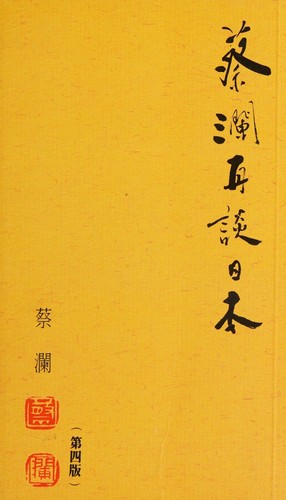 蔡瀾再談日本
蔡瀾
瀾
(第四版)